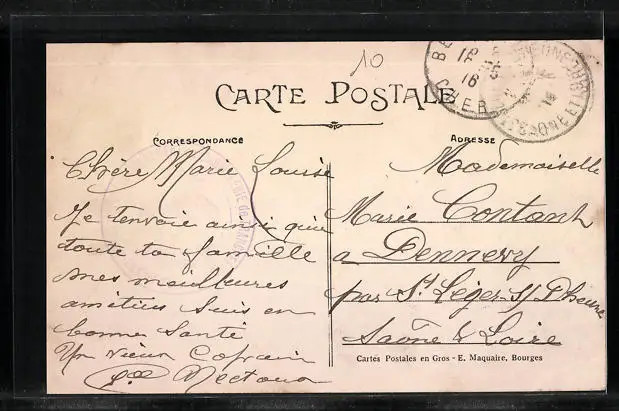 10
CARTE POSTALE
CORRESPONDANCE
ADRESSE
Chère Marie Louise
Je t'envoie ainsi qu'a
toute ta famille
mes meilleures
amitiés suis en
bonne santé
Un vieux Copain
Mademoiselle
Marie Contant
a Dennevy
par St Léger s/ Dheune
Saône & Loire
Cartes Postales en Gros - E. Maquaire, Bourges
CHER
16